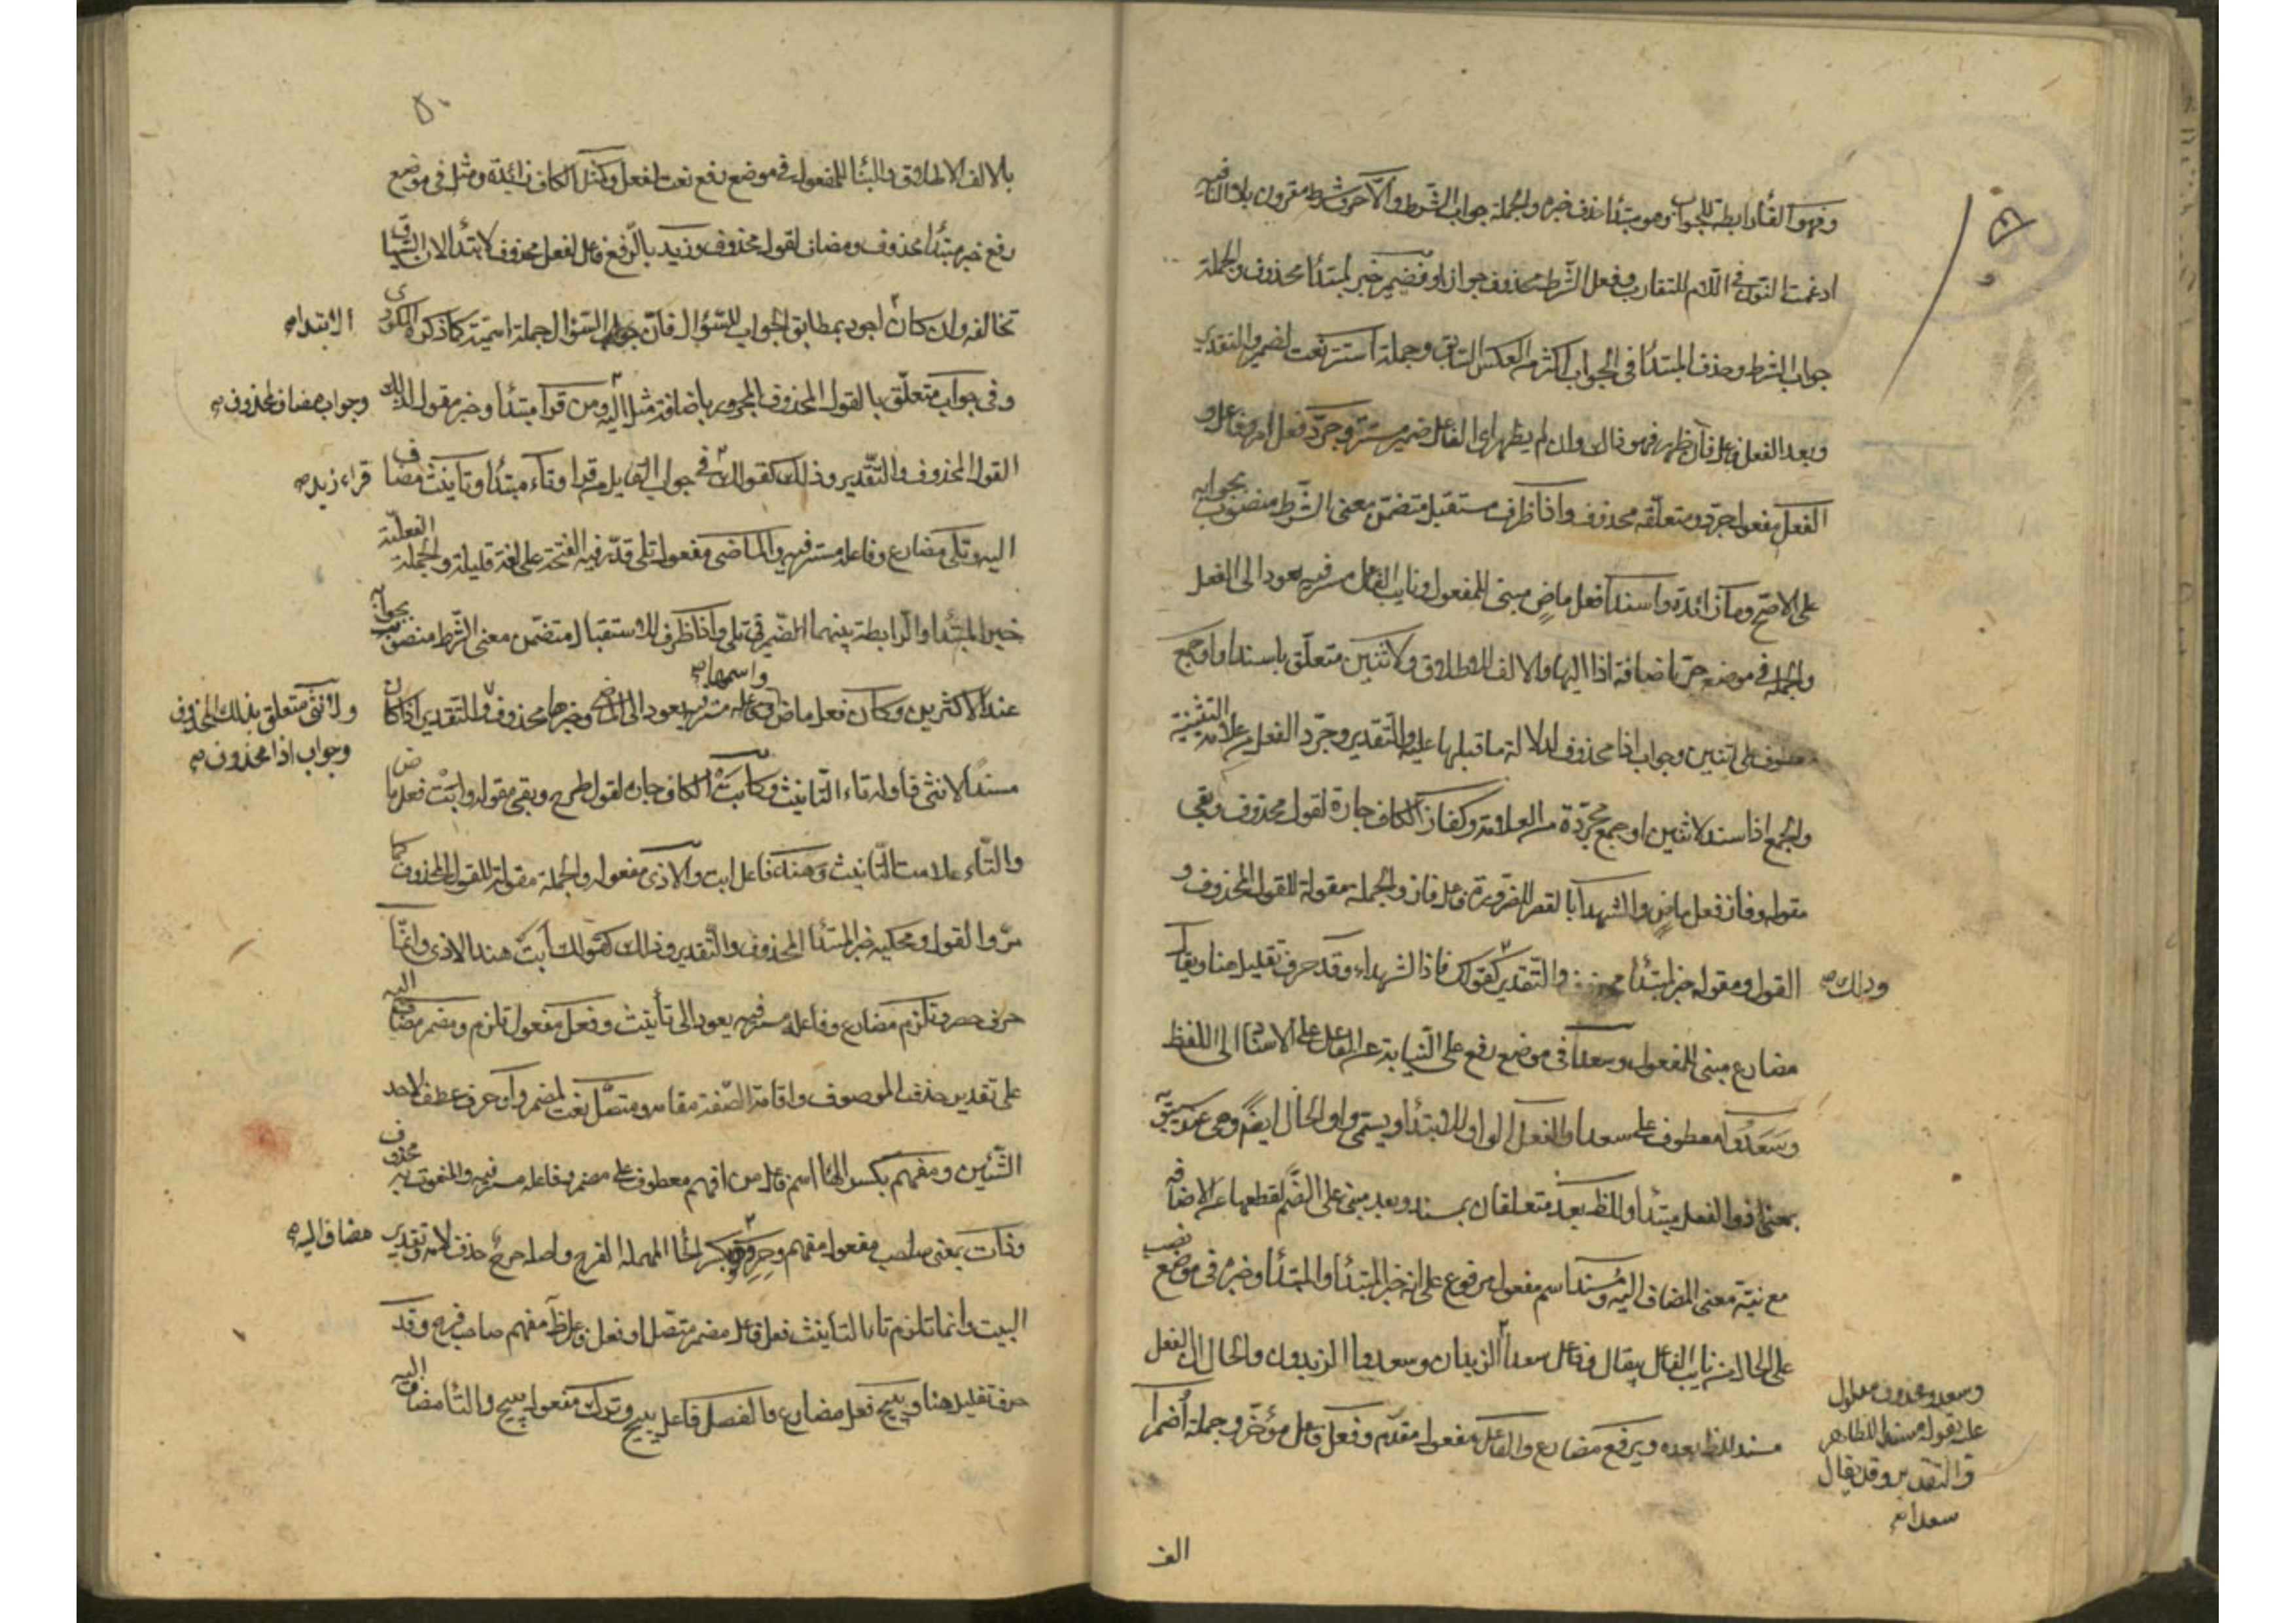 وفهو الفاء رابطة للجواب وهو مبتدا حذف خبره والجملة جواب الشرط والا حرف شرط مقرون بلا النافيه
ادغمت النون في اللام للتقارب وفعل الشرط محذوف جوازا وفضمير خبر لمبتدا محذوف والجملة
جواب الشرط وحذف المبتدا في الجواب اكثر من العكس السابق وجملة استتر نعت لضمير والتقدير
وبعد الفعل فاعل فان ظهر فهو ذاك وان لم يظهر اى الفاعل ضمير مستتر وجرد فعل امر وفاعل و
الفعل مفعول جرد ومتعلقه محذوف واذا ظرف مستقبل متضمن معنى الشرط منصوب بجوابه
على الاصح وما زائدة واسندا فعل ماض مبنى للمفعول ونايب الفاعل مستتر فيه يعود الى الفعل
والجملة في موضع جر باضافة اذا اليها والالف للاطلاق ولاثنين متعلق باسندا واو جمع
معطوف على اثنين وجواب اذا محذوف لدلالة ما قبلها عليه والتقدير وجرد الفعل من علامة التثنية
والجمع اذا اسند لاثنين او جمع مجردة من العلامة وكفاز الكاف جارة لقول محذوف وبقى
مقوله وفاز فعل ماض والشهدا بالقصر للضرورة فاعل فاز والجملة مقولة للقول المحذوف و
القول ومقوله خبر لمبتدا والتقدير كقولك فاز الشهداء وقد حرف تقليل هنا ويقال
وذلك صح
مضارع مبنى للمفعول وسعدا في موضع رفع على النيابة عن الفاعل على الاسناد الى اللفظ
وسعدوا معطوف على سعدا والفعل الواو للابتدا ويسمى واو الحال ايضا وهي عند سيبويه
بمعنى اذ والفعل مبتدا وللظ بعد متعلقان بمسند وبعد مبنى على الضم لقطعها عن الاضافه
مع نية معنى المضاف اليه ومسند اسم مفعول مرفوع على انه خبر المبتدا والمبتدا وخبره في موضع نصب
على الحال من نايب الفاعل بيقال وفاعل سعدا الزيدان وسعدوا الزيدون والحال ان الفعل
مسند للظ بعده ويرفع مضارع والفاعل مفعول مقدم وفعل فاعل مؤخر وجملة اضمرا
وسعدوا
على قوله مسند للظاهر
والتقدير وقد يقال
سعدا صح
الف
٥٠
بالالف الاطلاق والبنا للمفعول في موضع رفع نعت لفعل وكمثل الكاف زائدة ومثل في موضع
رفع خبر مبتدا محذوف ومضاف لقول محذوف وزيد بالرفع فاعل لفعل محذوف لا مبتدا لان السياق
تخالفه وان كان اجود بمطابق الجواب للسؤال فان جواب السؤال جملة اسمية كما ذكره المكودى
الابتدا صح
وفي جواب متعلق بالقول المحذوف المجرور باضافة مثل اليه ومن قرا مبتدا وخبر مقول لذلك
وجواب مضاف لمحذوف صح
القول المحذوف والتقدير وذلك كقولك في جواب القايل من قرا وتاء مبتدا وتانيث مضاف
قراء زيد صح
اليه وتلى مضارع وفاعله مستتر فيه والماضى مفعول تلى قدر فيه الفتحة على لغة قليلة والجملة الفعلية
خبر المبتدا والرابطة بينهما الضمير في تلى واذا ظرف للاستقبال متضمن معنى الشرط منصوب بجوابه
عند الاكثرين وكان فعل ماض واسمها صح مستتر فيه يعود الى الماضى وخبرها محذوف والتقدير اذا كان
ولانثى متعلق بذلك المحذوف
وجواب اذا محذوف صح
مسندا لانثى فاوله تاء التانيث وكابت الكاف جاره لقول طرح وبقى مقوله وابت فعل ماض
والتاء علامت التانيث وهند فاعل ابت والاذى مفعوله والجملة مقولة للقول المحذوف كما
مر والقول ومحكيه خبر المبتدا المحذوف والتقدير وذلك كقولك ابت هند الاذى وانما
حرف حصر وتلزم مضارع وفاعله مستتر فيه يعود الى تأنيث وفعل مفعول تلزم ومضمر مضاف اليه
على تقدير حذف الموصوف واقامة الصفة مقامه ومتصل نعت لمضمر وأو حرف عطف لاحد
الشيئين ومفهم بكسر الهاء اسم فاعل من افهم معطوف على مضمر وفاعله مستتر فيه والمنعوت به محذوف
وذات بمعنى صاحب مفعول مفهم وحر بكسر الحا المهملة الفرج واصله حرح حذف لامه وتقدير
مضاف اليه صح
البيت وانما تلزم تاء التانيث فعل فاعل مضمر متصل او فعل فاعل ظا مفهم صاحب فرج وقد
حرف تقليل هنا ويبيح فعل مضارع والفصل فاعل يبيح وترك مفعول يبيح والتا مضاف اليه